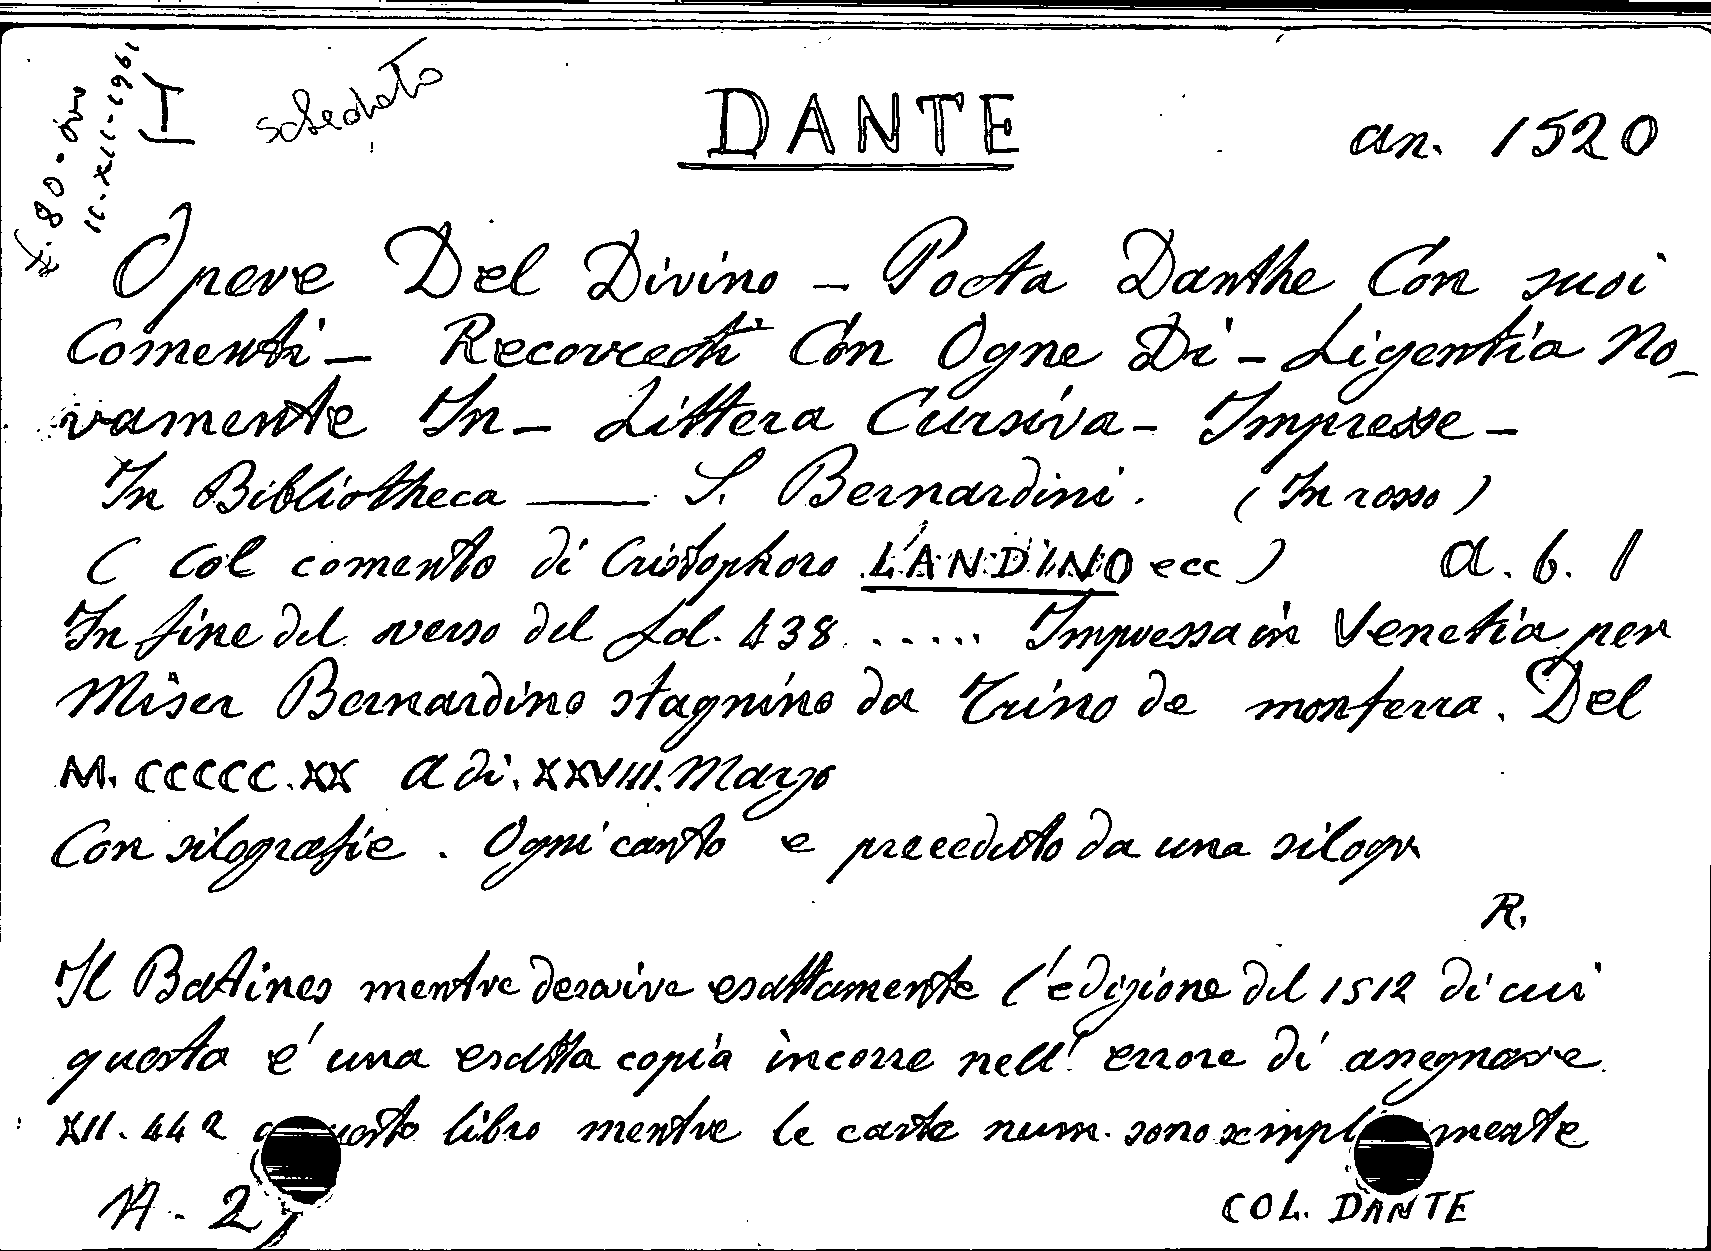 schedato
£. 80.000
16-XII-1961
I
DANTE
an. 1520
Opere Del Divino - Poeta Danthe Con suoi
Comenti - Recorrecti Con Ogne Di - Ligentia No_
vamente In - Littera Cursiva - Impresse -
In Bibliotheca — S. Bernardini. (In rosso)
( Col comento di Cristophoro LANDINO ecc ) a. b. l
In fine del verso del fol. 438 ..... Impressa in Venetia per
Miser Bernardino stagnino da Trino de monferra. Del
M. CCCCC.XX a di. XXVIII. Marzo
Con silografie. Ogni canto e preceduto da una silogr
R.
Il Batines mentre descrive esattamente l'edizione del 1512 di cui
questa e' una esatta copia incorre nell' errore di assegnare
XII. 442 a questo libro mentre le carte num. sono semplicemente
A - 2
COL. DANTE